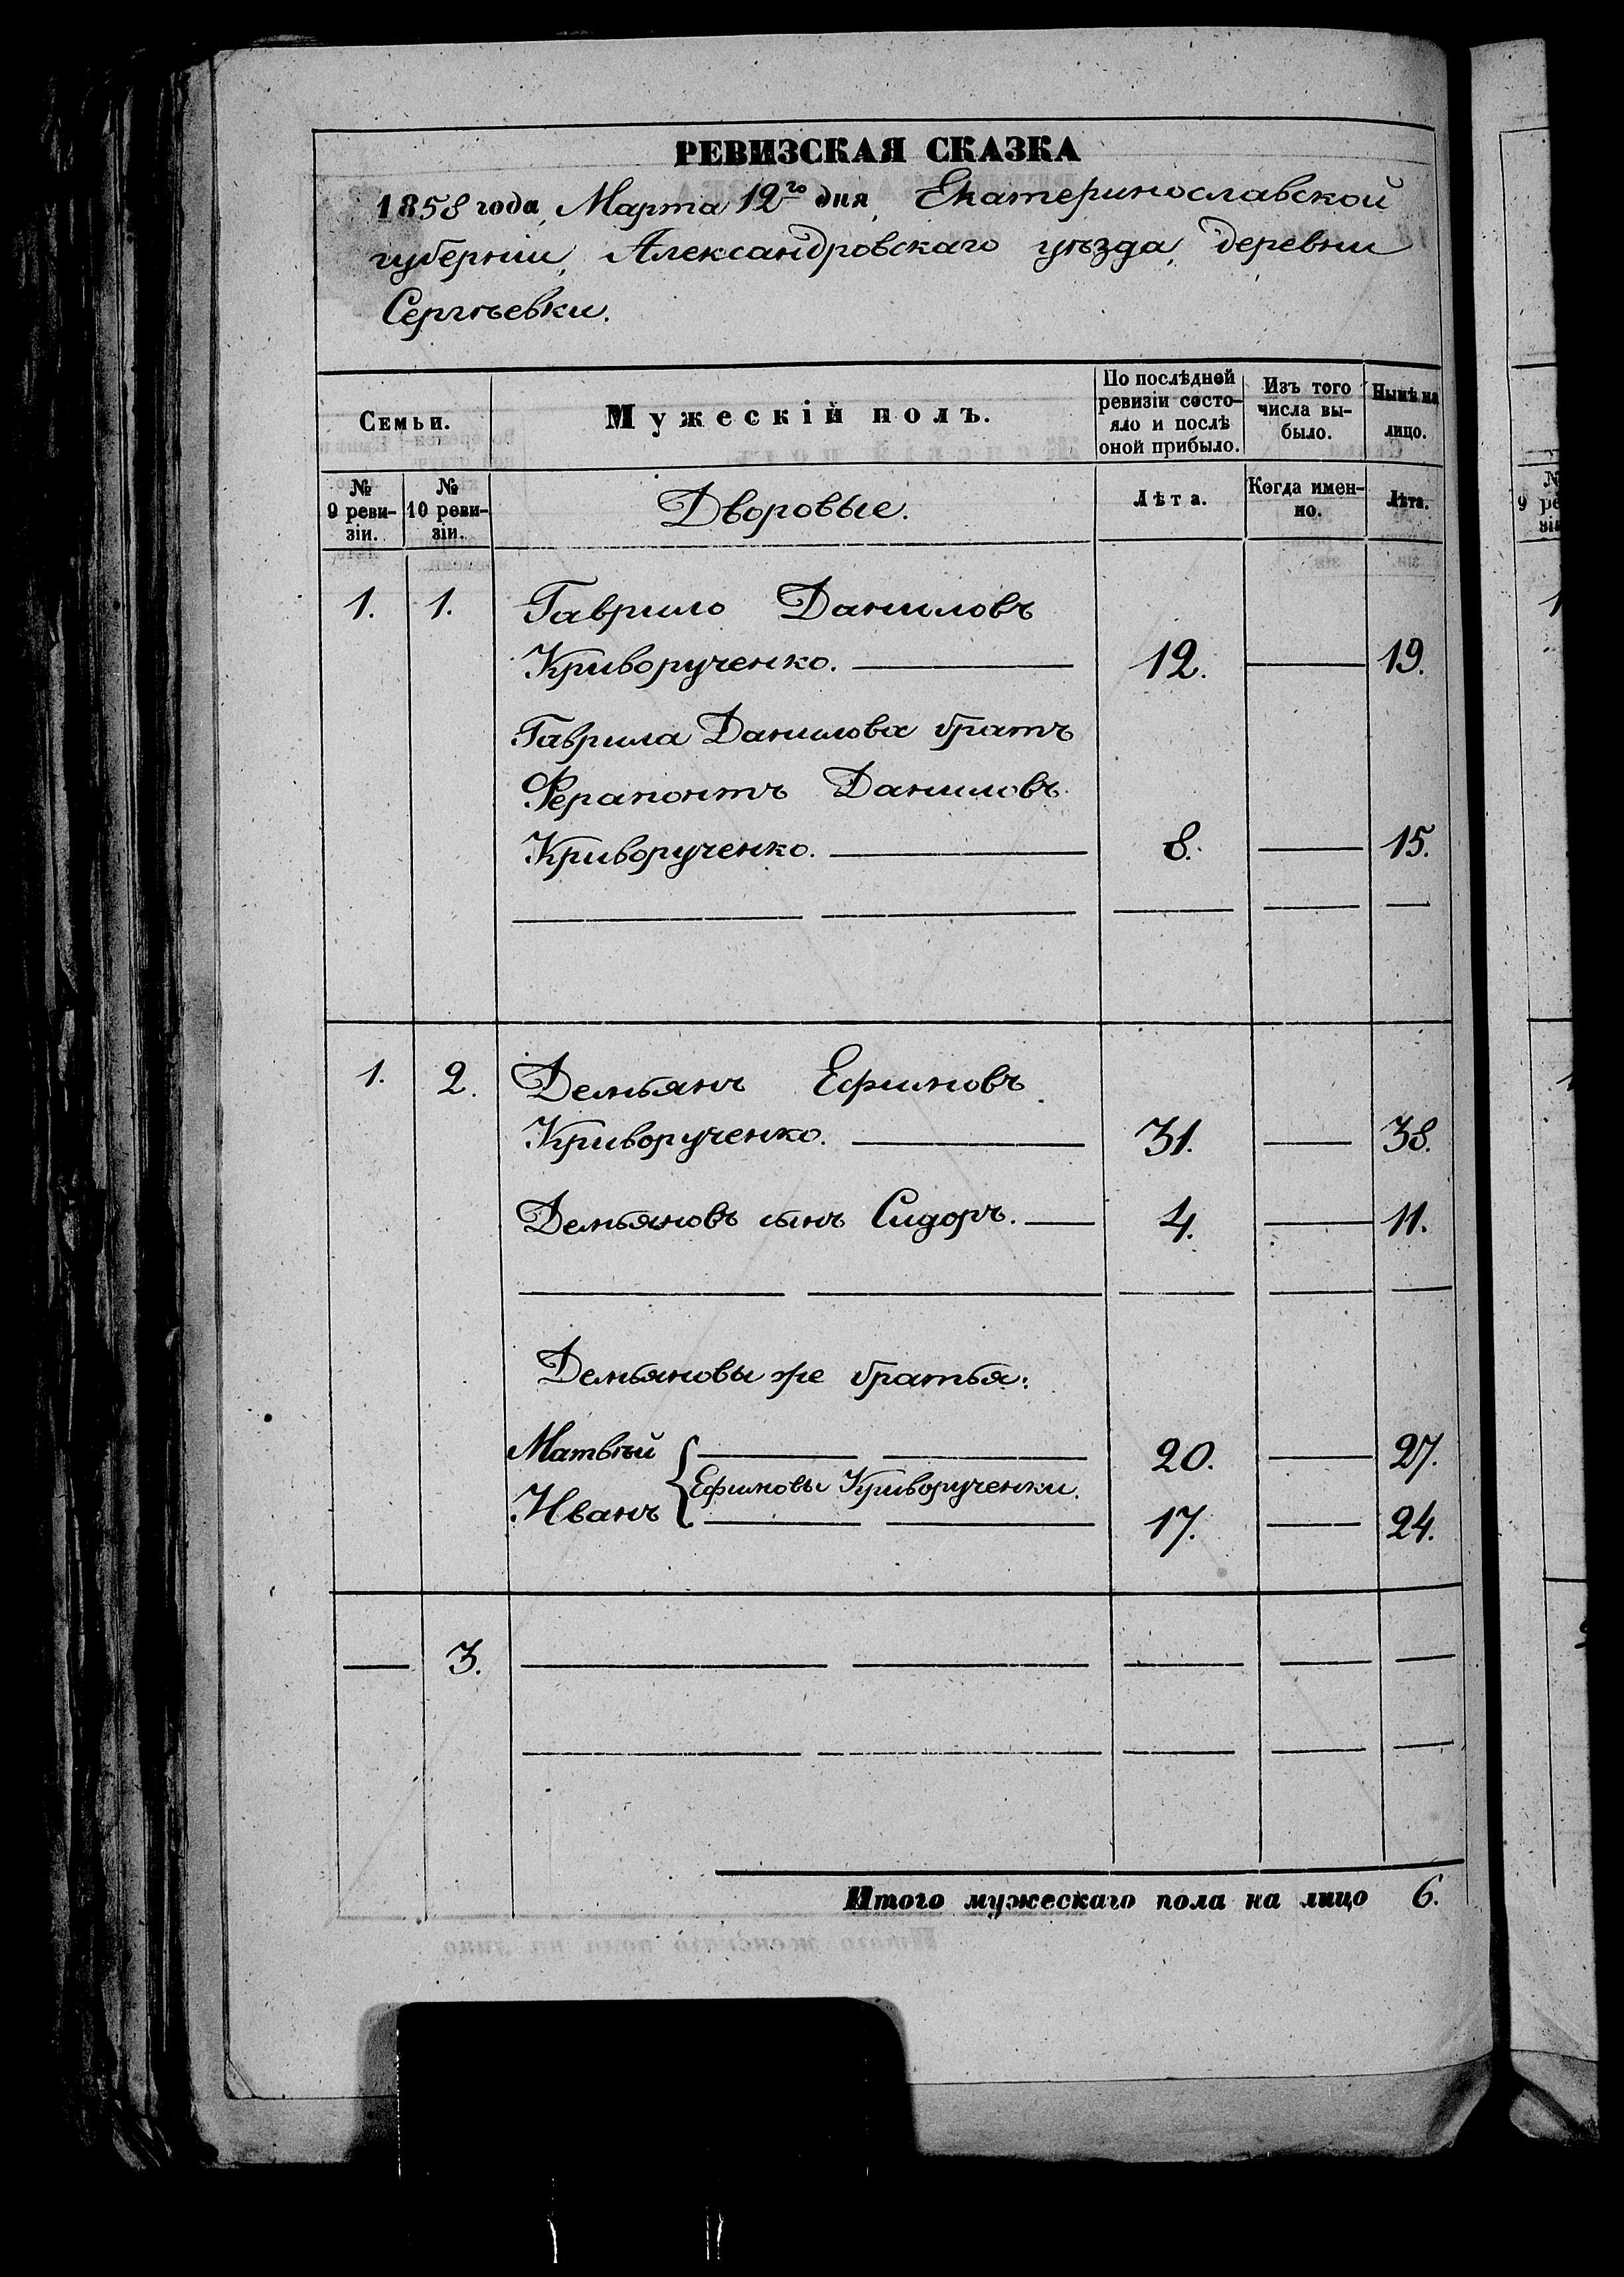 РЕВИЗСКАЯ СКАЗКА
1858 года, Марта 12го дня, Екатеринославской
губерніи, Александровскаго уѣзда, деревни
Сергѣевки.
Семьи.
Мужескій полъ.
По послѣдней
ревизіи состо-
яло и послѣ
оной прибыло.
Изъ того
числа вы-
было.
Нынѣ на
лицо.
№
9 реви-
зіи.
№
10 реви-
зіи.
Дворовые.
Лѣта.
Когда имен-
но.
Лѣта.
1. 1. Гаврило Даниловъ
Криворученко. 12. 19.
Гаврила Данилова братъ
Ферапонтъ Даниловъ
Криворученко. 8. 15.
1. 2. Демьянъ Ефимовъ
Криворученко. 31. 38.
Демьяновъ сынъ Сидоръ. 4. 11.
Демьяновы же братья:
Матвѣй 20. 27.
Ефимовы Криворученки.
Иванъ 17. 24.
3.
Итого мужескаго пола на лицо 6.